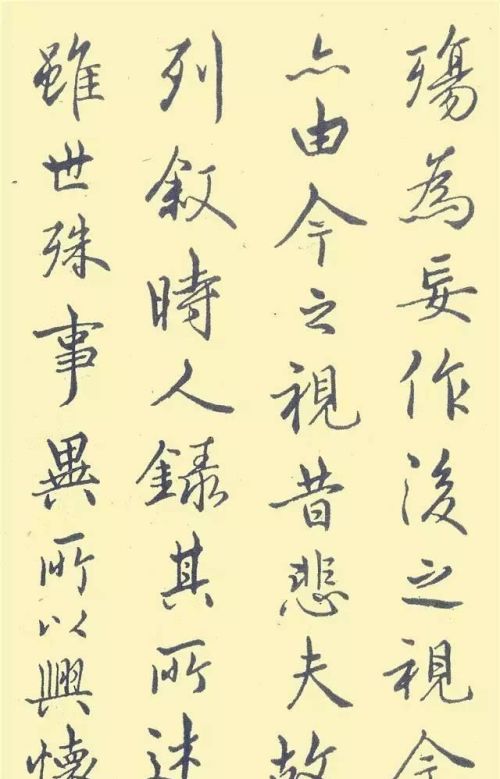 殤為妄作後之視今
亦由今之視昔悲夫故
列敘時人錄其所述
雖世殊事異所以興懷